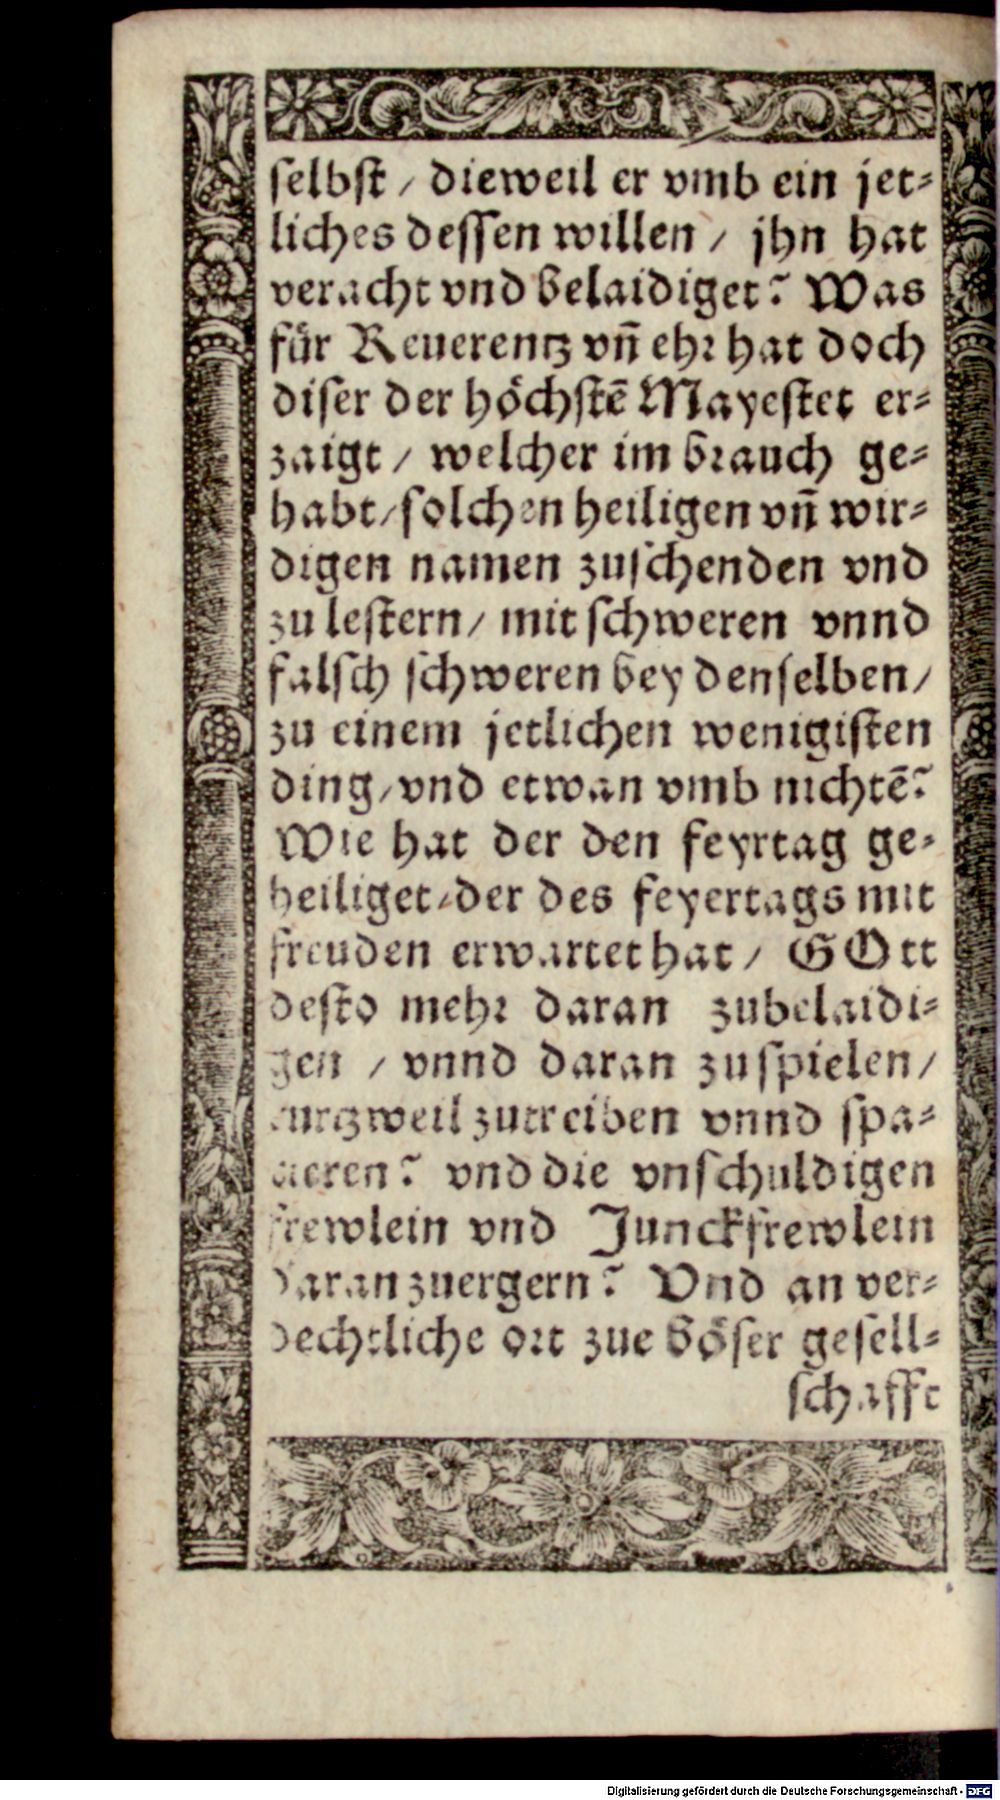 selbst / dieweil er vmb ein jet⸗
liches dessen willen / jhn hat
veracht vnd belaidiget? Was
für Reuerentz vn̄ ehr hat doch
diser der höchstē Mayestet er⸗
zaigt / welcher im brauch ge⸗
habt / solchen heiligen vn̄ wir⸗
digen namen zuschenden vnd
zu lestern / mit schweren vnnd
falsch schweren bey denselben /
zu einem jetlichen wenigisten
ding / vnd etwan vmb nichtē?
Wie hat der den feyrtag ge⸗
heiliget / der des feyertags mit
freuden erwartet hat / GOtt
desto mehr daran zubelaidi⸗
gen / vnnd daran zuspielen /
kurtzweil zutreiben vnnd spa⸗
cieren? vnd die vnschuldigen
frewlein vnd Junckfrewlein
daran zuergern? Vnd an ver⸗
dechtliche ort zue böser gesell⸗
schafft
Digitalisierung gefördert durch die Deutsche Forschungsgemeinschaft - DFG